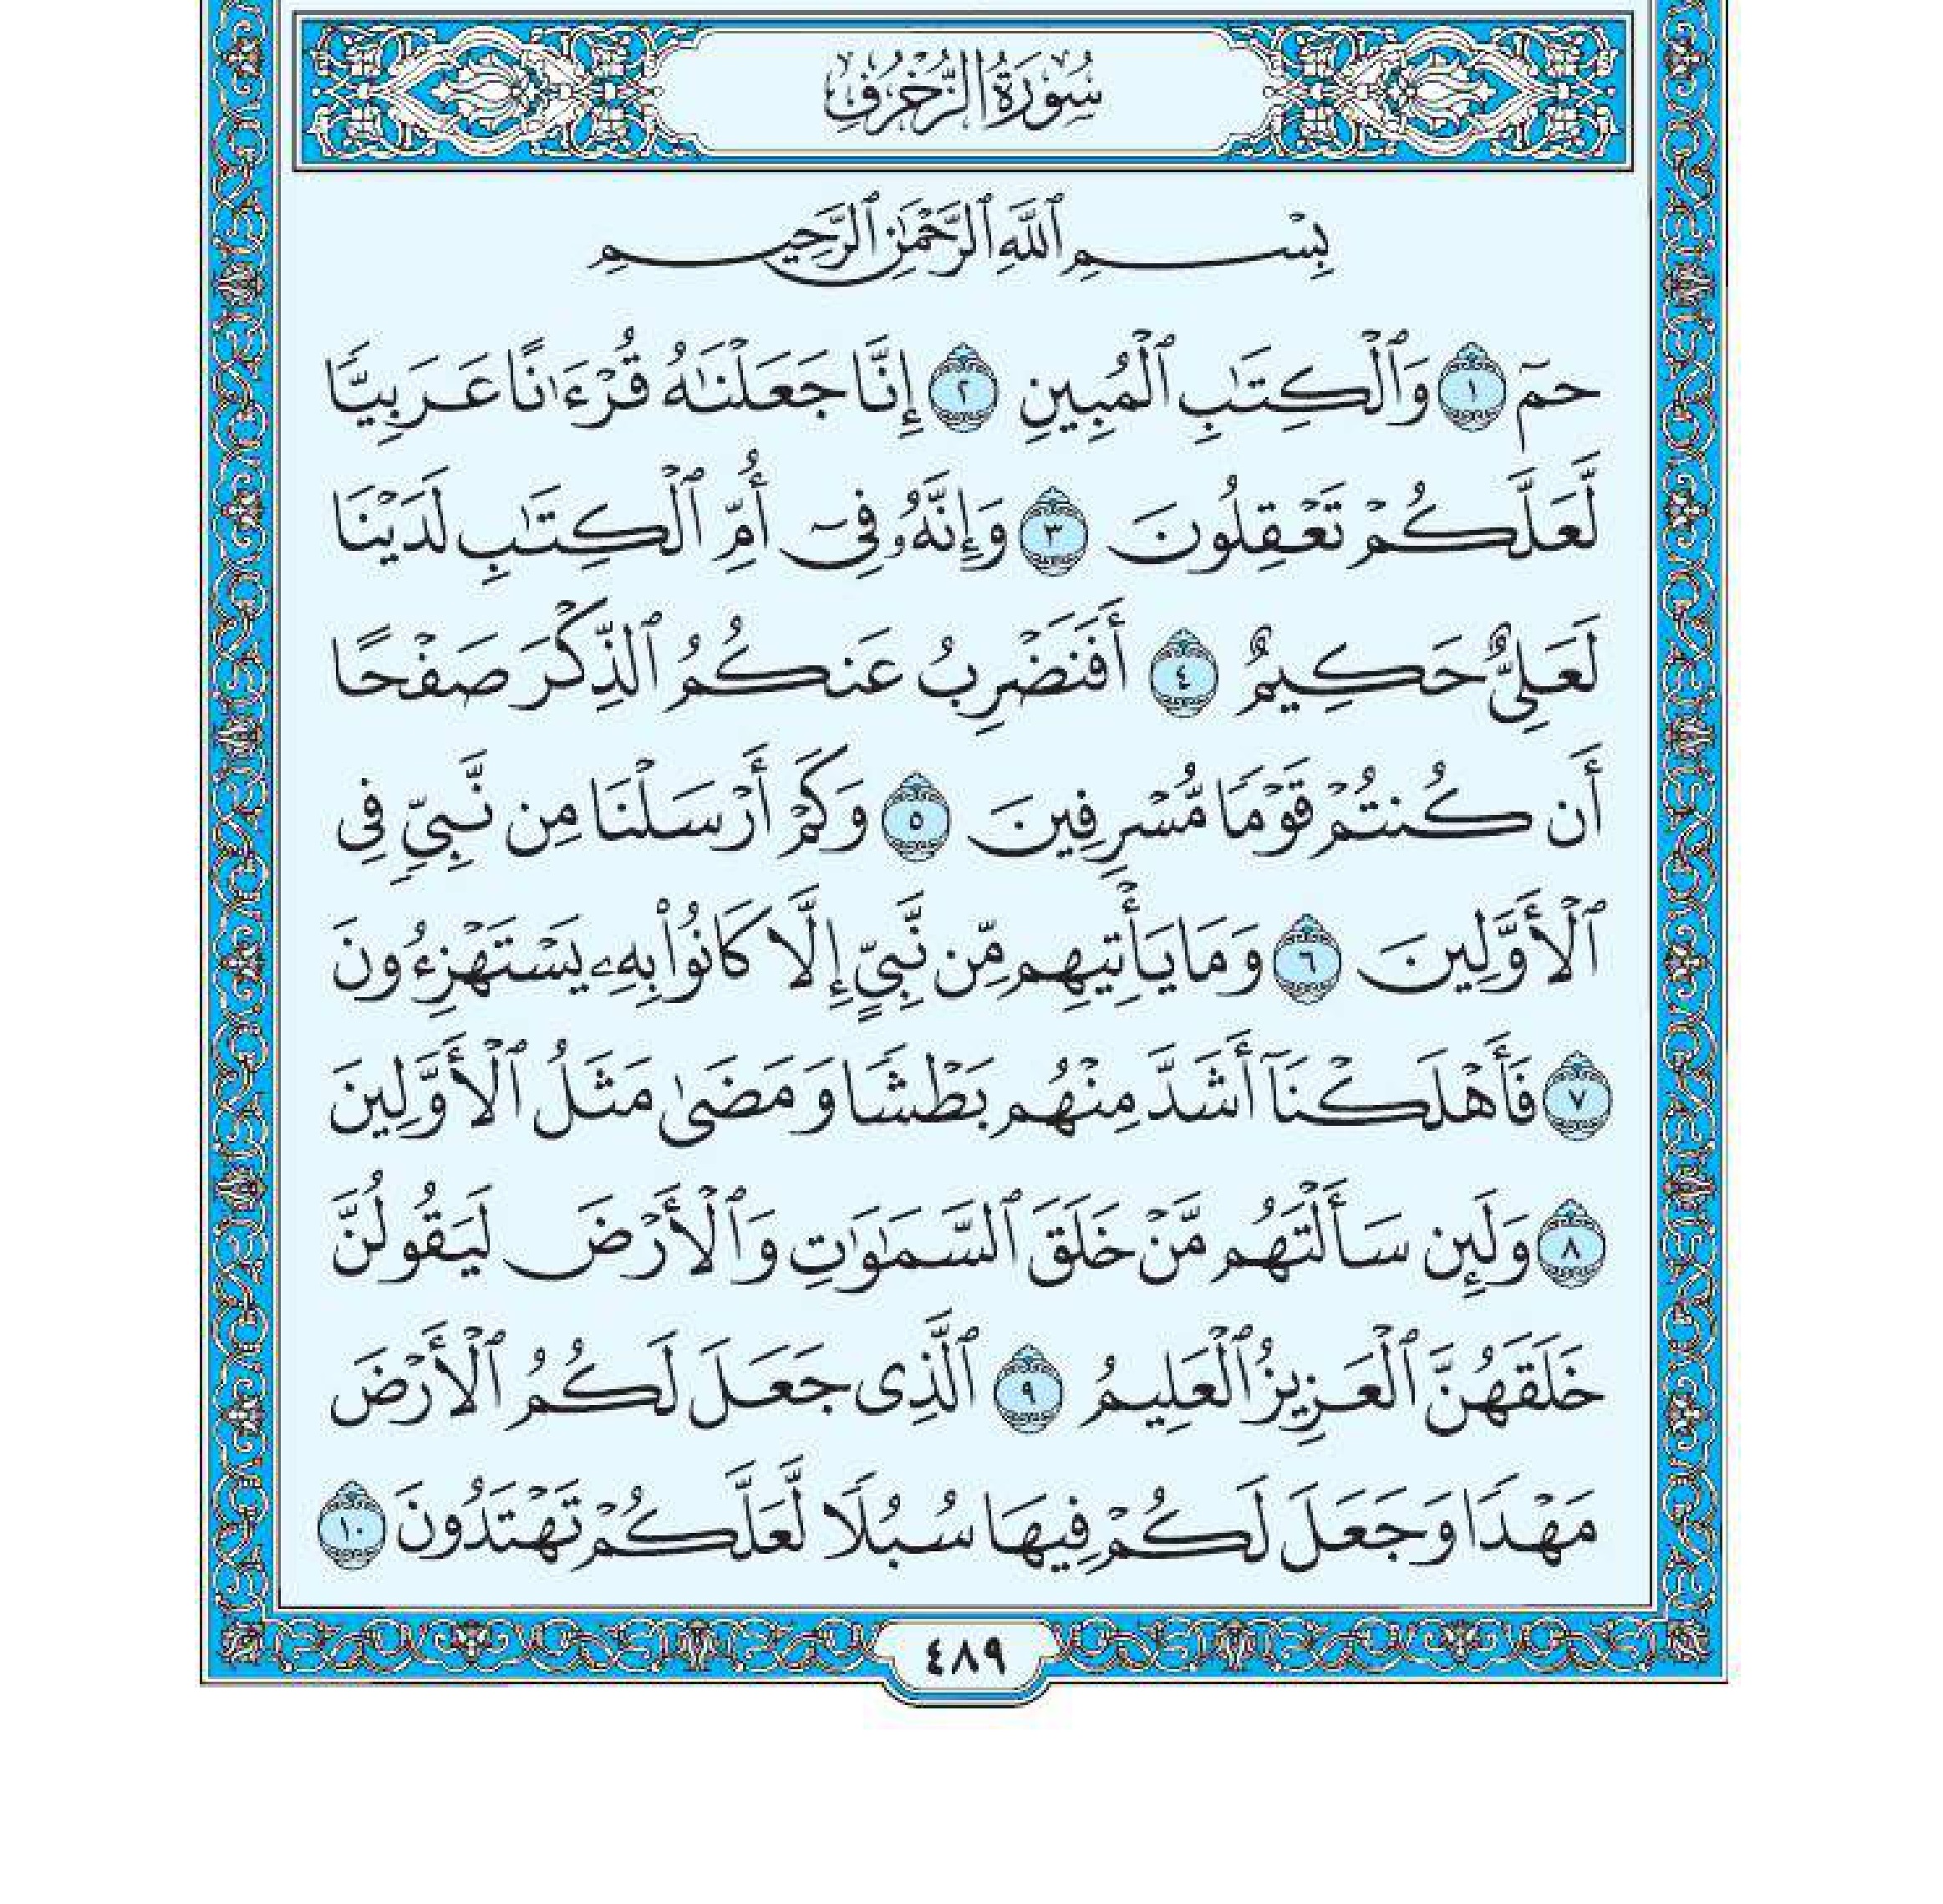 سُورَةُ الزُّخْرُفِ
بِسْمِ ٱللَّهِ ٱلرَّحْمَٰنِ ٱلرَّحِيمِ
حمٓ ١ وَٱلْكِتَٰبِ ٱلْمُبِينِ ٢ إِنَّا جَعَلْنَٰهُ قُرْءَٰنًا عَرَبِيًّا
لَّعَلَّكُمْ تَعْقِلُونَ ٣ وَإِنَّهُۥ فِىٓ أُمِّ ٱلْكِتَٰبِ لَدَيْنَا
لَعَلِىٌّ حَكِيمٌ ٤ أَفَنَضْرِبُ عَنكُمُ ٱلذِّكْرَ صَفْحًا
أَن كُنتُمْ قَوْمًا مُّسْرِفِينَ ٥ وَكَمْ أَرْسَلْنَا مِن نَّبِىٍّ فِى
ٱلْأَوَّلِينَ ٦ وَمَا يَأْتِيهِم مِّن نَّبِىٍّ إِلَّا كَانُوا۟ بِهِۦ يَسْتَهْزِءُونَ
٧ فَأَهْلَكْنَآ أَشَدَّ مِنْهُم بَطْشًا وَمَضَىٰ مَثَلُ ٱلْأَوَّلِينَ
٨ وَلَئِن سَأَلْتَهُم مَّنْ خَلَقَ ٱلسَّمَٰوَٰتِ وَٱلْأَرْضَ لَيَقُولُنَّ
خَلَقَهُنَّ ٱلْعَزِيزُ ٱلْعَلِيمُ ٩ ٱلَّذِى جَعَلَ لَكُمُ ٱلْأَرْضَ
مَهْدًا وَجَعَلَ لَكُمْ فِيهَا سُبُلًا لَّعَلَّكُمْ تَهْتَدُونَ ١٠
٤٨٩